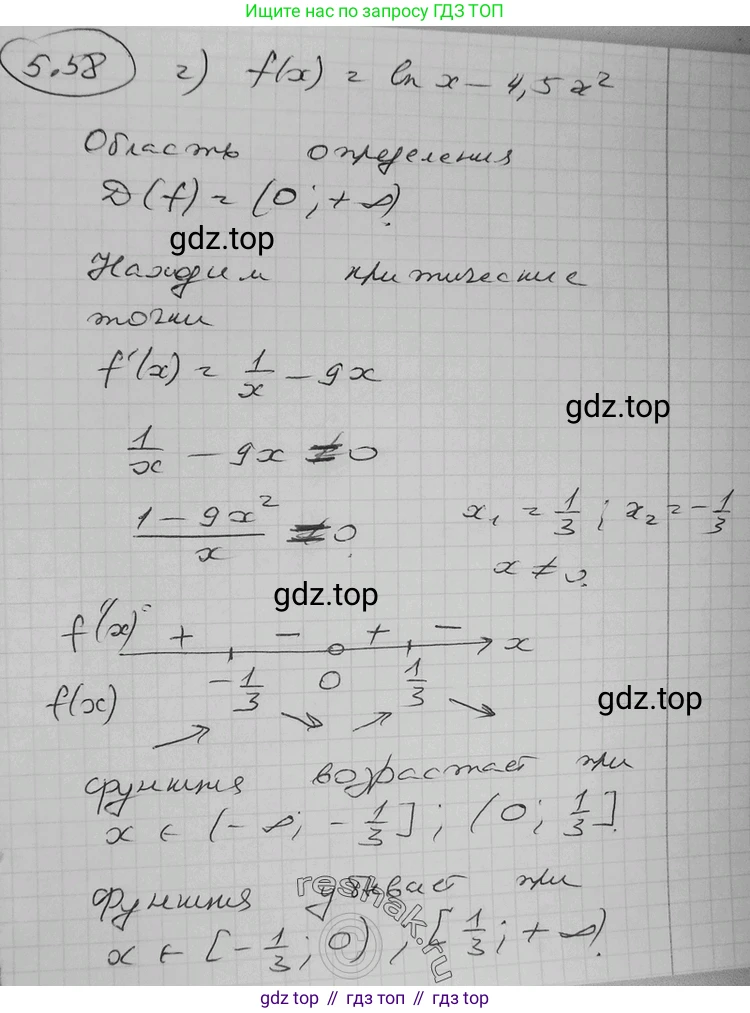 Ищите нас по запросу ГДЗ ТОП
5.58 г) f(x) = ln x – 4,5x²
Область определения
D(f) = (0; +∞).
gdz.top
Находим критические
точки
f'(x) = 1/x – 9x
gdz.top
1/x – 9x = 0
(1 – 9x²)/x = 0. x₁ = 1/3; x₂ = –1/3
x ≠ 0.
gdz.top
f'(x) + – + – x
–1/3 0 1/3
f(x)
gdz.top
функция возрастает при
x ∈ (–∞; –1/3]; (0; 1/3].
функция убывает при
reshak.ru
x ∈ [–1/3; 0), [1/3; +∞).
gdz top // гдз топ // gdz top